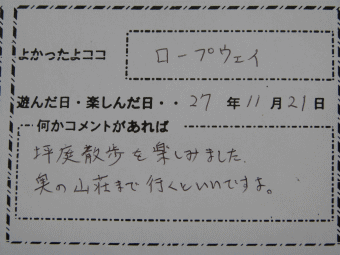 よかったよココ ロープウェイ
遊んだ日・楽しんだ日・・27年11月21日
何かコメントがあれば
坪庭散歩を楽しみました。
奥の山荘まで行くといいですよ。